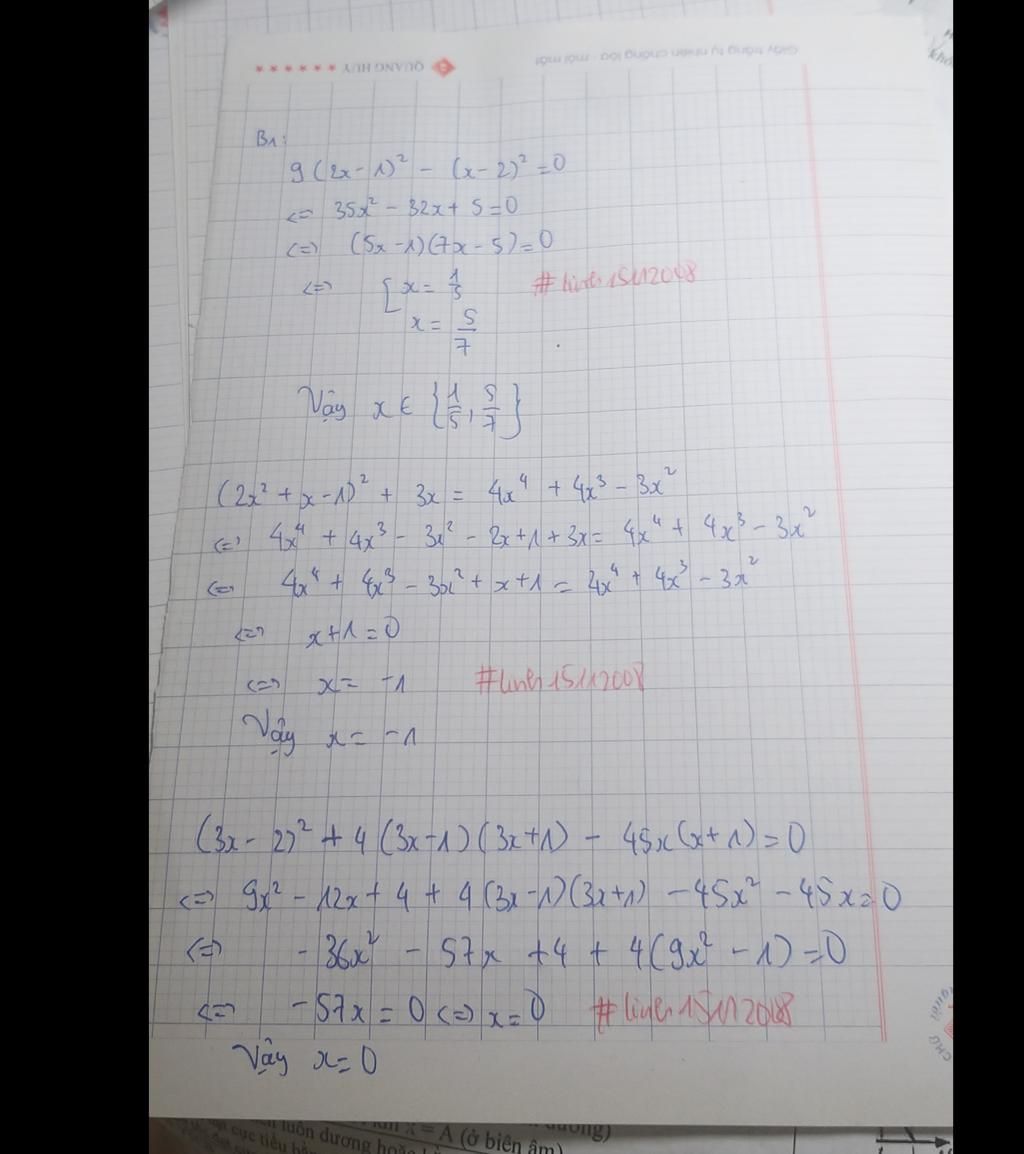 Giấy trắng tự nhiên chống lóa - mỏi mắt
QUANG HUY
B1:
9(2x-1)² - (x-2)² = 0
<=> 35x² - 32x + 5 = 0
<=> (5x-1)(7x-5) = 0
<=> [x = 1/5
x = 5/7
#linh15112008
Vậy x ∈ {1/5, 5/7}
(2x² + x - 1)² + 3x = 4x⁴ + 4x³ - 3x²
<=> 4x⁴ + 4x³ - 3x² - 2x + 1 + 3x = 4x⁴ + 4x³ - 3x²
<=> 4x⁴ + 4x³ - 3x² + x + 1 = 4x⁴ + 4x³ - 3x²
<=> x + 1 = 0
<=> x = -1 #linh15112008
Vậy x = -1
(3x-2)² + 4(3x-1)(3x+1) - 45x(x+1) = 0
<=> 9x² - 12x + 4 + 4(3x-1)(3x+1) - 45x² - 45x = 0
<=> -36x² - 57x + 4 + 4(9x² - 1) = 0
<=> -57x = 0 <=> x = 0 #linh15112008
Vậy x = 0
x = A (ở biên âm)
luôn dương hoặc
cực tiểu